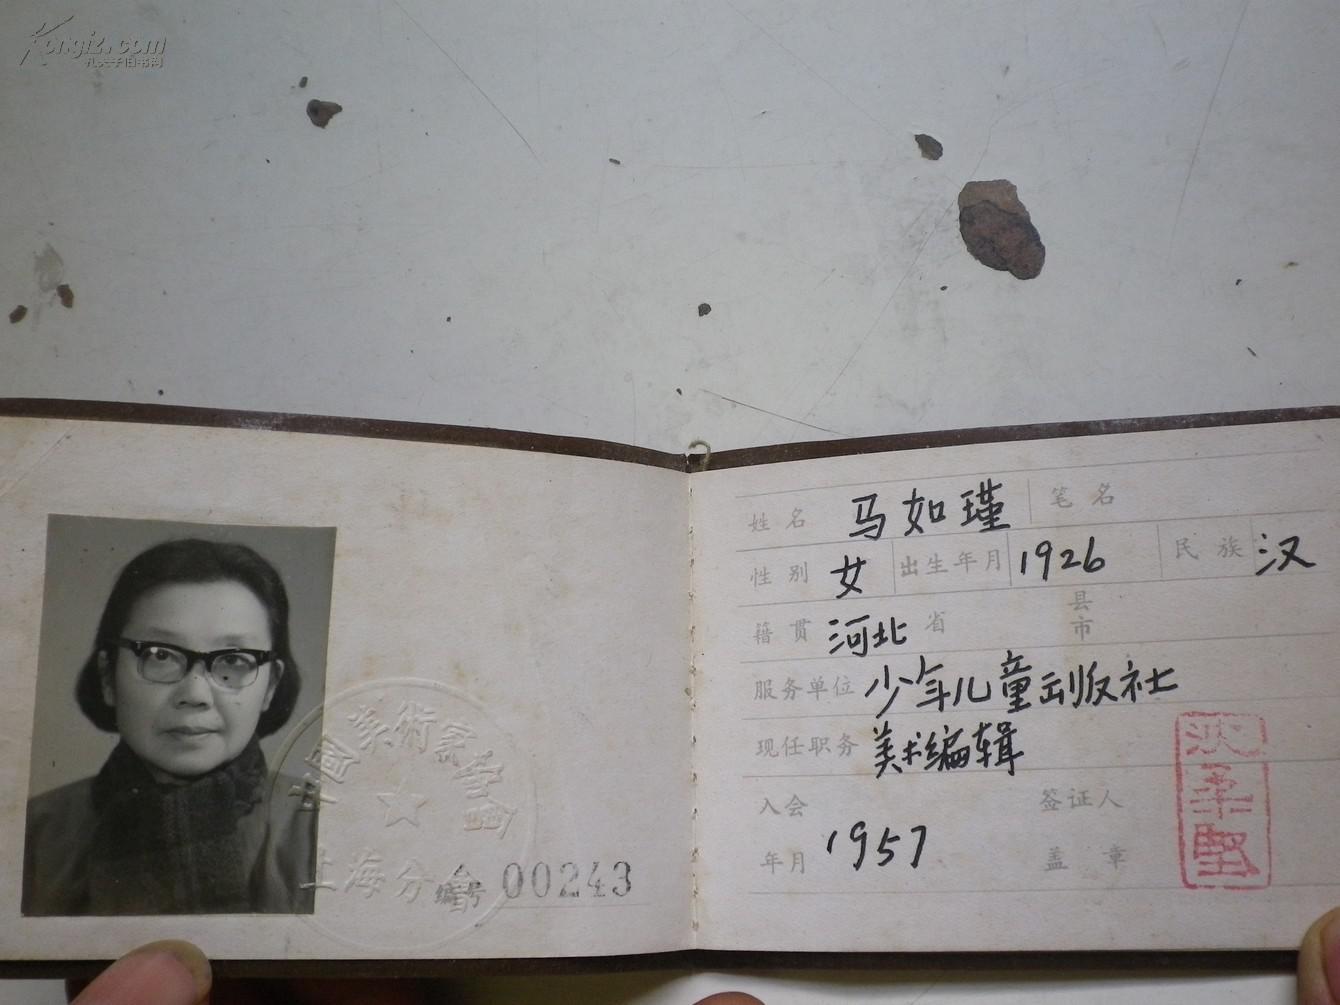 Kongfz.com
孔夫子旧书网
中國美術家協會
上海分会
编号 00243
姓名 马如瑾 笔名
性别 女 出生年月 1926 民族 汉
籍贯 河北 省 县市
服务单位 少年儿童出版社
现任职务 美术编辑
入会年月 1957 签证人盖章
沈柔坚